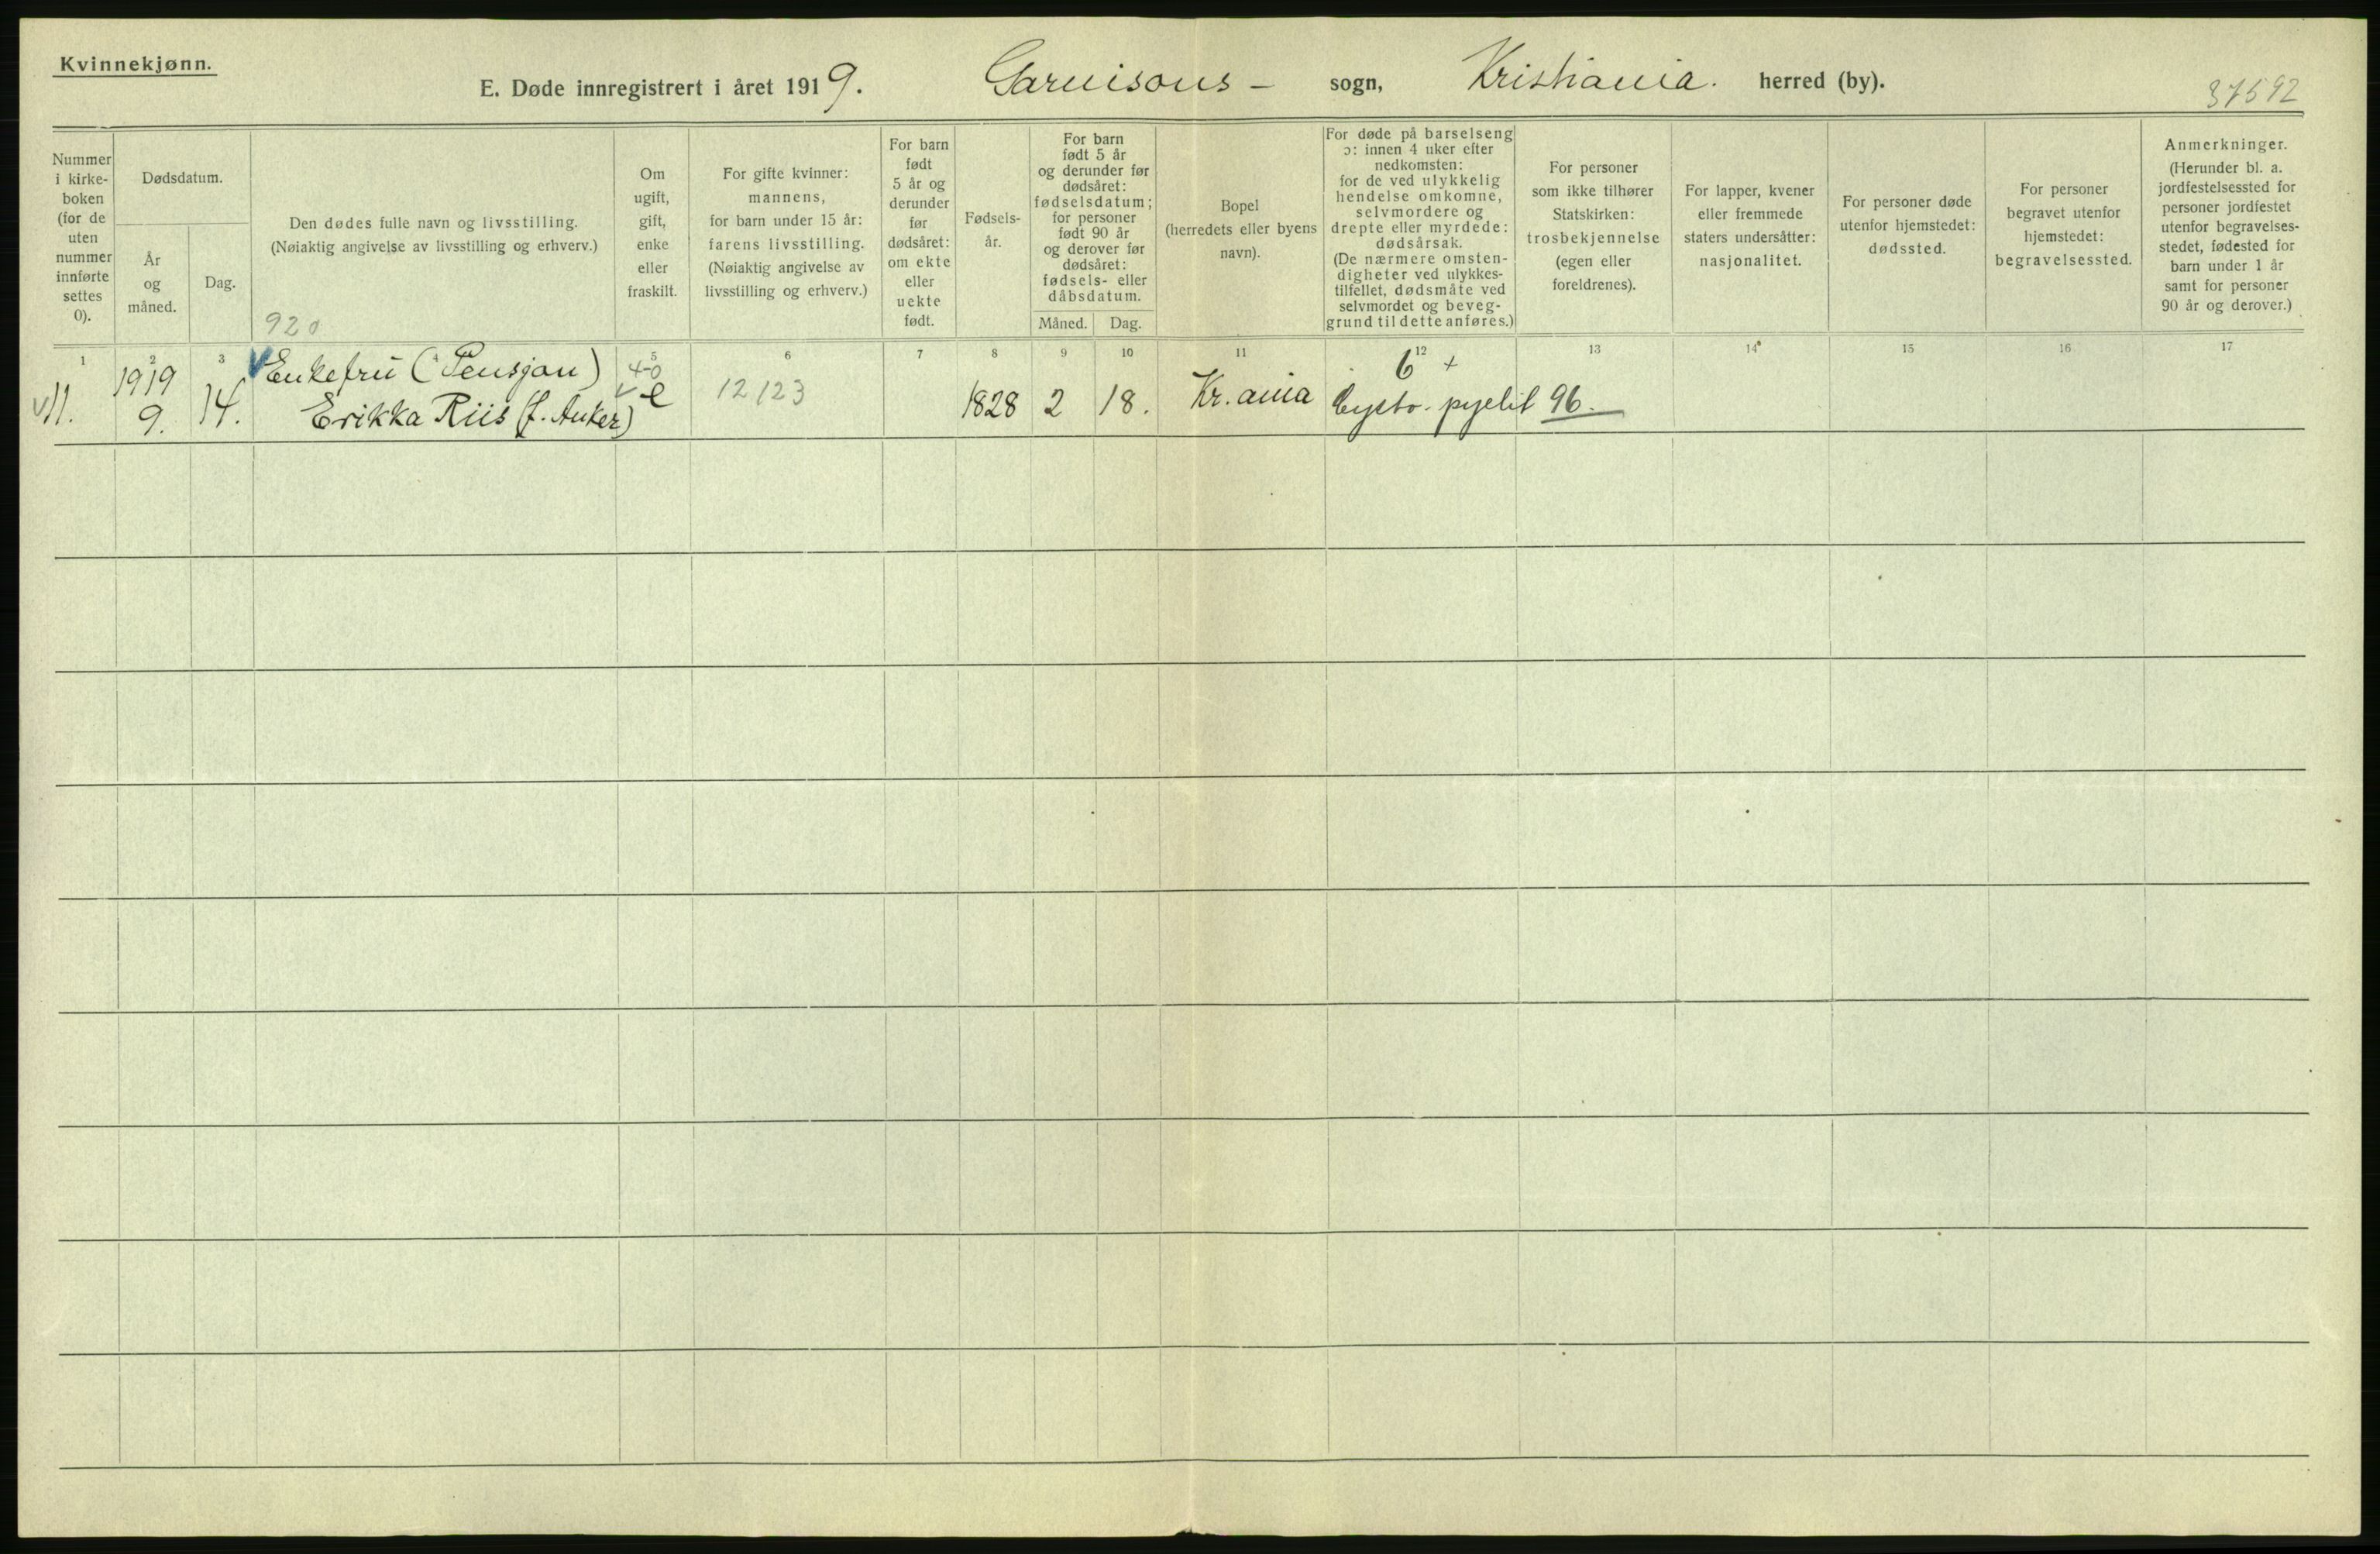 Kvinnekjønn.
E. Døde innregistrert i året 1919. Garnisons - sogn, Kristiania. herred (by).
37592
Nummer i kirke- boken (for de uten nummer innførte settes 0).
Dødsdatum.
År og måned.
Dag.
Den dødes fulle navn og livsstilling.
(Nøiaktig angivelse av livsstilling og erhverv.)
920
Om ugift, gift, enke eller fraskilt.
For gifte kvinner: mannens, for barn under 15 år: farens livsstilling. (Nøiaktig angivelse av livsstilling og erhverv.)
For barn født 5 år og derunder før dødsåret: om ekte eller uekte født.
Fødsels- år.
For barn født 5 år og derunder før dødsåret: fødselsdatum; for personer født 90 år og derover før dødsåret: fødsels- eller dåbsdatum.
Måned.
Dag.
Bopel (herredets eller byens navn).
For døde på barselseng ɔ: innen 4 uker efter nedkomsten: for de ved ulykkelig hendelse omkomne, selvmordere og drepte eller myrdede: dødsårsak. (De nærmere omsten- digheter ved ulykkes- tilfellet, dødsmåte ved selvmordet og beveg- grund til dette anføres.)
For personer som ikke tilhører Statskirken: trosbekjennelse (egen eller foreldrenes).
For lapper, kvener eller fremmede staters undersåtter: nasjonalitet.
For personer døde utenfor hjemstedet: dødssted.
For personer begravet utenfor hjemstedet: begravelsessted.
Anmerkninger. (Herunder bl. a. jordfestelsessted for personer jordfestet utenfor begravelses- stedet, fødested for barn under 1 år samt for personer 90 år og derover.)
1 2 3 4 5 6 7 8 9 10 11 12 13 14 15 16 17
1919 Enkefru (Pensjon) 40 6 +
11. 9. 14. Erikka Riis (f. Anker) e 12123 1828 2 18. Kr.ania Cysto-pyelit 96.